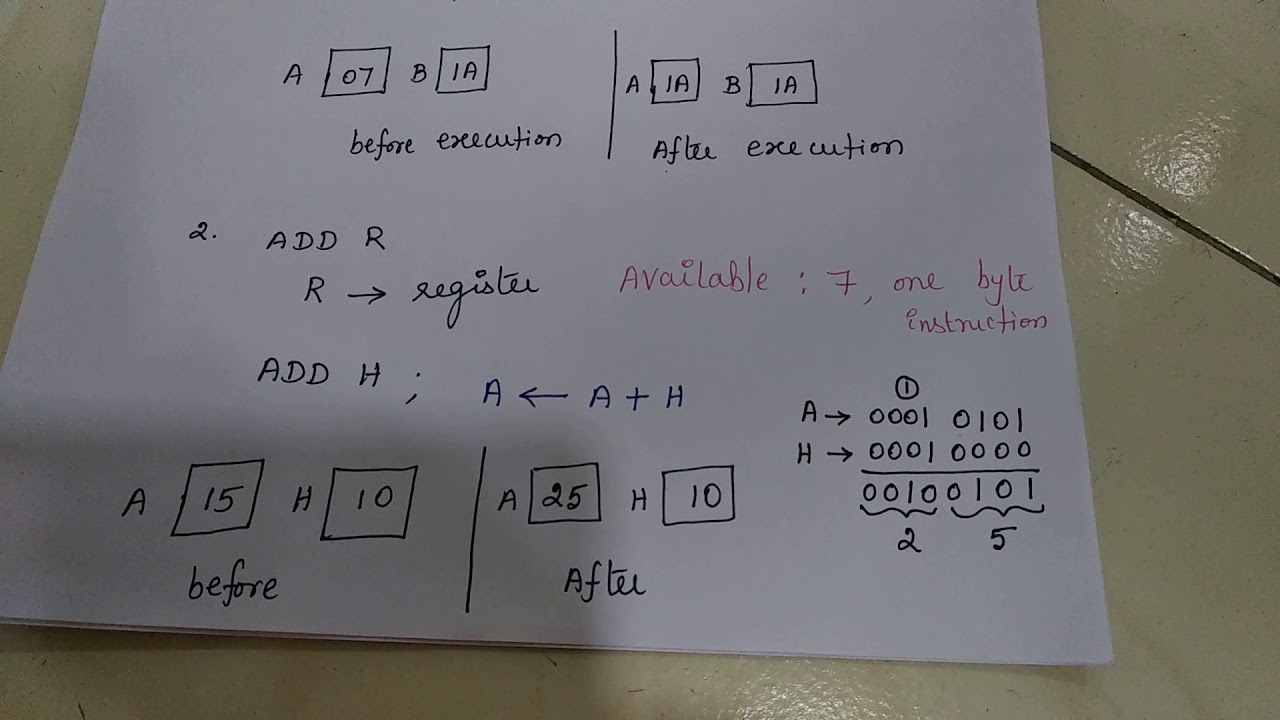 A 07 B 1A A 1A B 1A
before execution After execution
2. ADD R
R → register Available : 7, one byte
instruction
ADD H ; A ← A + H
①
A → 0001 0101
H → 0001 0000
0010 0101
2 5
A 15 H 10 A 25 H 10
before After